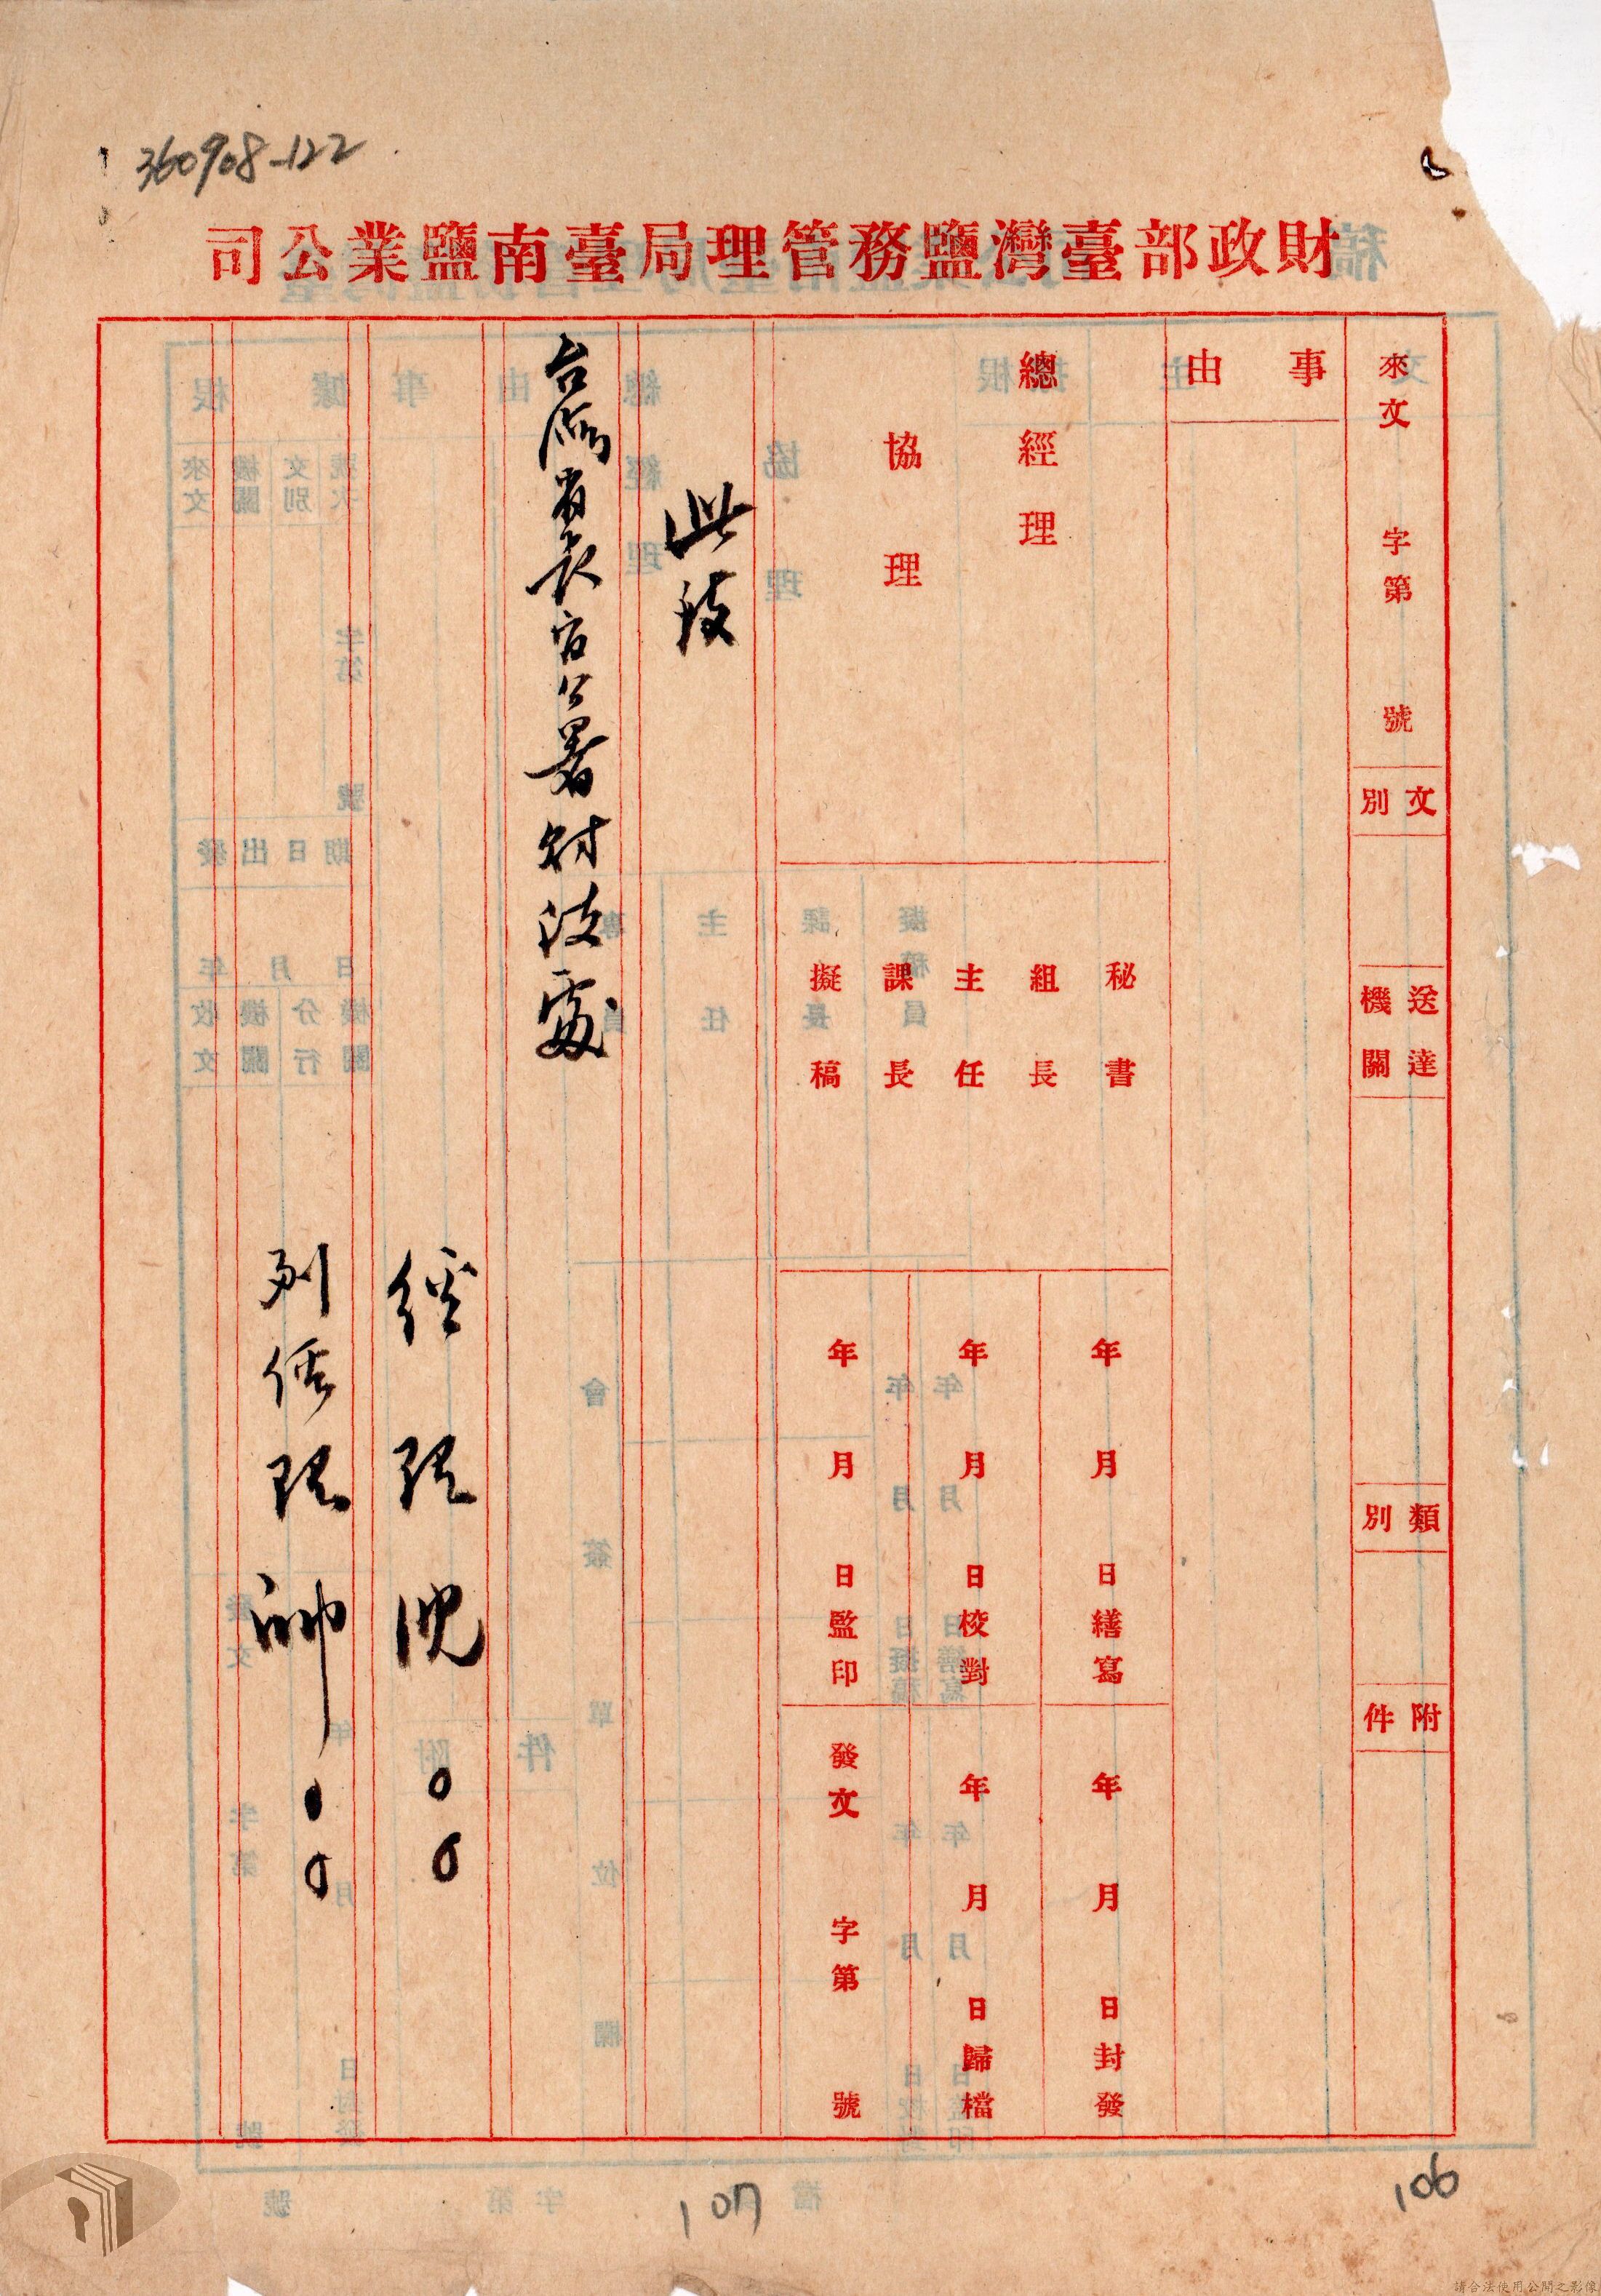 360908-122
財政部臺灣鹽務管理局臺南鹽業公司
稿
來文 字第 號
文別
送達機關
類別
附件
事由
總經理
協理
秘書
組長
主任
課長
擬稿
年 月 日繕寫
年 月 日校對
年 月 日監印
年 月 日封發
年 月 日歸檔
發文 字第 號
此致
台灣省長官公署財政處
經理沈〇〇
副經理帥〇〇
106
107
請合法使用公開之影像